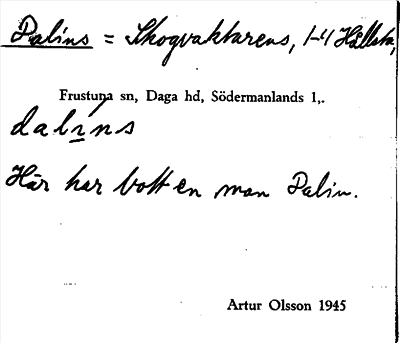 Dalins = Skogvaktarens, 1-4 Hållsta,
Frustuna sn, Daga hd, Södermanlands l,.
dalíns
Här har bott en man Dalin.
Artur Olsson 1945